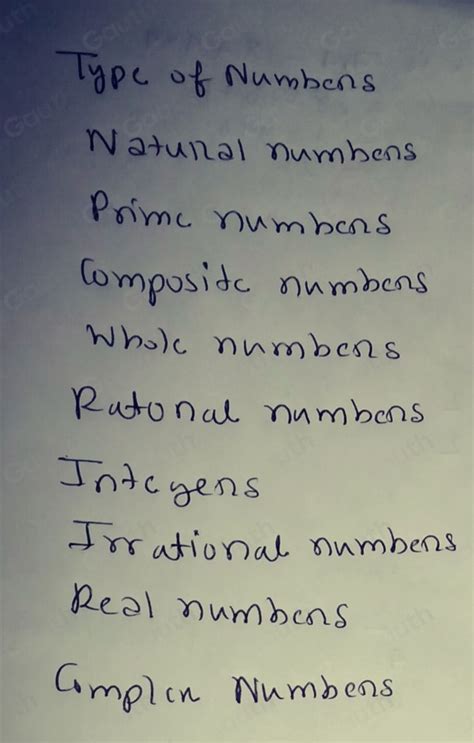 Type of Numbers
Natural numbers
Prime numbers
Composite numbers
Whole numbers
Ratonal numbers
Integers
Irrational numbers
Real numbers
Complex Numbers